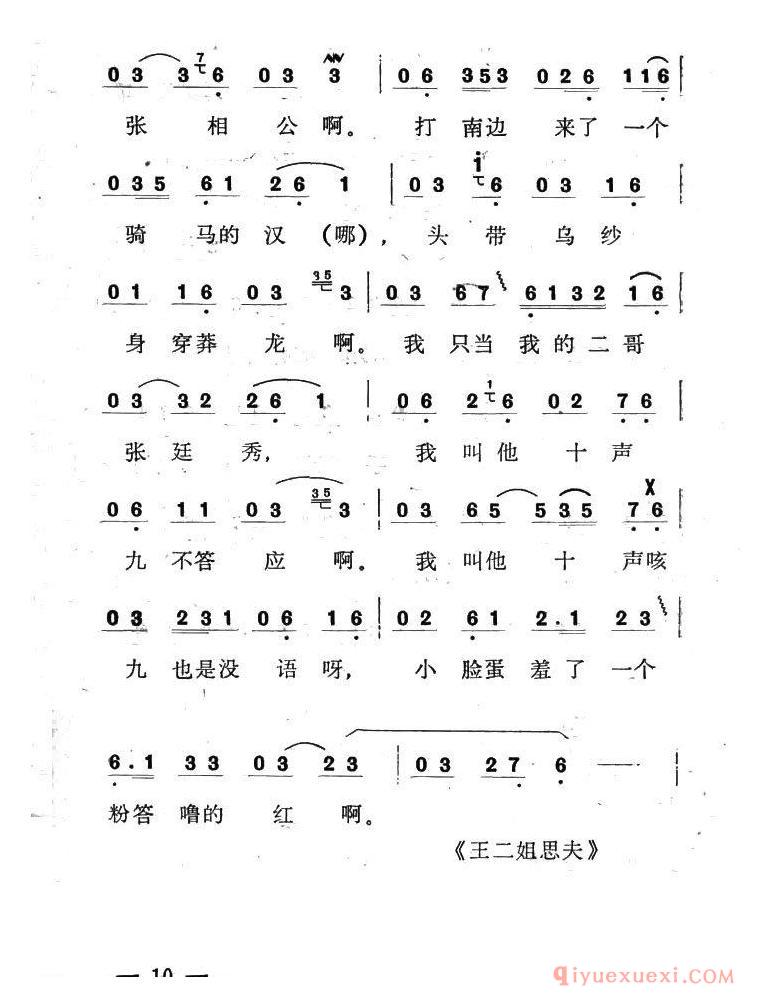 7
0 3 3 七 6 0 3 3 | 0 6 3 5 3 0 2 6 1 1 6 |
张 相 公 啊。 打 南边 来了 一个
i
0 3 5 6 1 2 6 1 | 0 3 七 6 0 3 1 6 |
骑 马的 汉 (哪), 头 带 乌 纱
0 1 1 6 0 3 3 5 3 | 0 3 6 7 6 1 3 2 1 6 |
身 穿莽 龙 啊。 我 只当 我的 二哥
0 3 3 2 2 6 1 | 0 6 2 1 6 0 2 7 6 |
张 廷 秀, 我 叫他 十 声
X
0 6 1 1 0 3 3 5 3 | 0 3 6 5 5 3 5 7 6 |
九 不答 应 啊。 我 叫他 十 声咳
0 3 2 3 1 0 6 1 6 | 0 2 6 1 2 . 1 2 3 |
九 也是没 语 呀, 小 脸蛋 羞了 一个
6 . 1 3 3 0 3 2 3 | 0 3 2 7 6 — |
粉答 噜的 红 啊。
《王二姐思夫》
— 10 —
qiyuexuexi.com